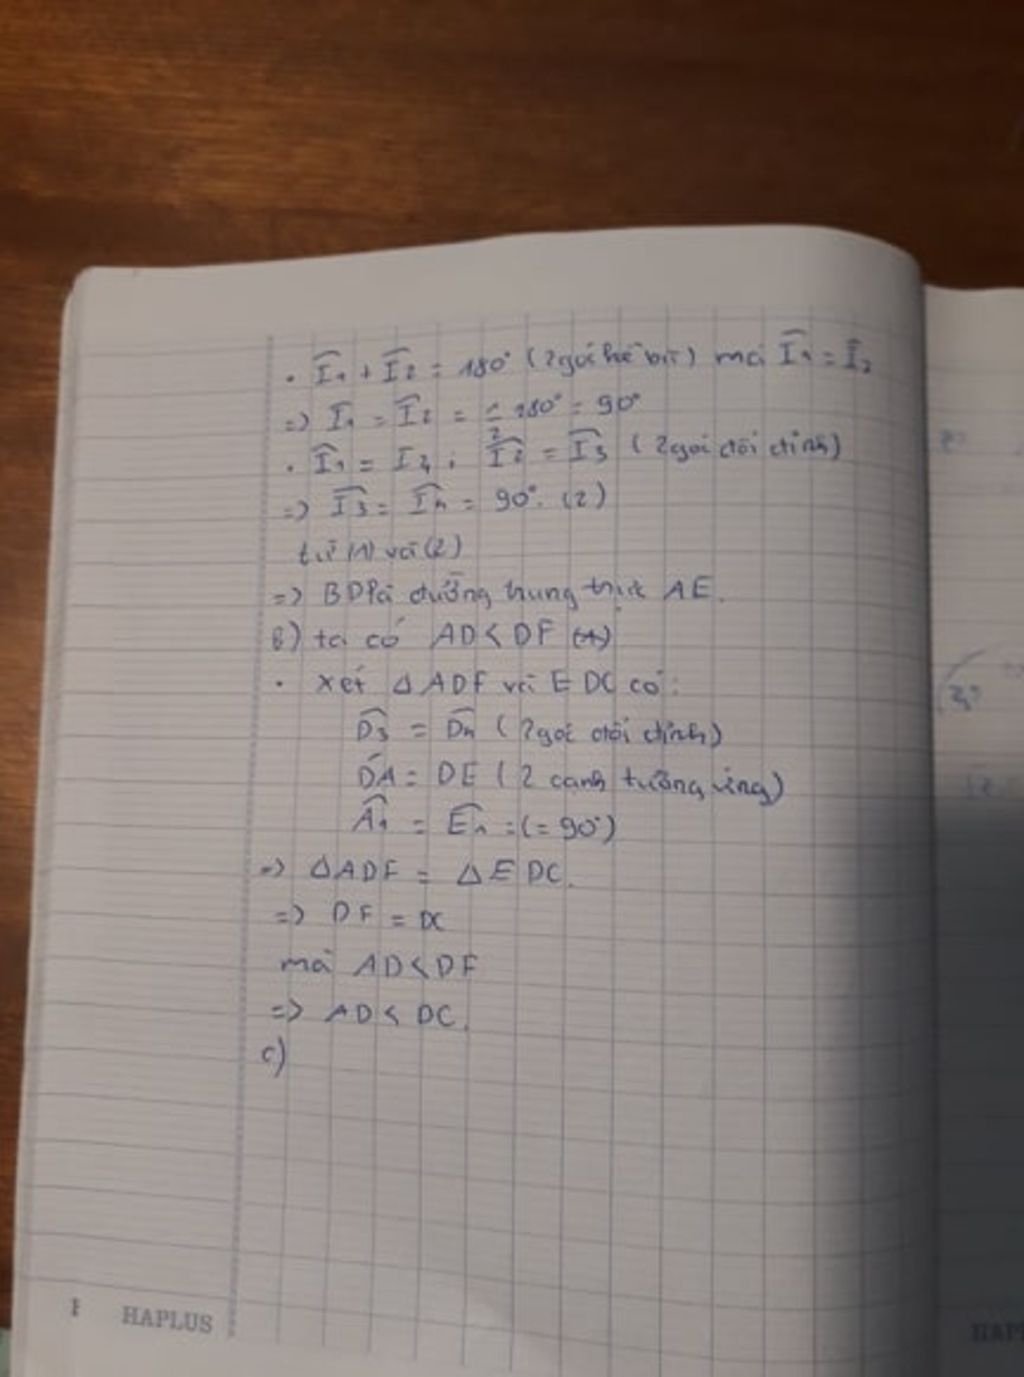 . Î₁ + Î₂ = 180° (2 góc kề bù) mà Î₁ = Î₂
=> Î₁ = Î₂ = 1/2 180° = 90°
. Î₁ = I₄ ; Î₂ = Î₃ (2 góc đối đỉnh)
=> Î₃ = Î₄ = 90°. (2)
từ (1) và (2)
=> BD là đường trung trực AE.
b) ta có AD < DF
. xét Δ ADF và E DC có:
D̂₃ = D̂₄ (2 góc đối đỉnh)
DA = DE (2 cạnh tương ứng)
Â₁ = Ê₁ = (= 90°)
=> Δ ADF = Δ E DC.
=> DF = DC
mà AD < DF
=> AD < DC.
c)
HAPLUS